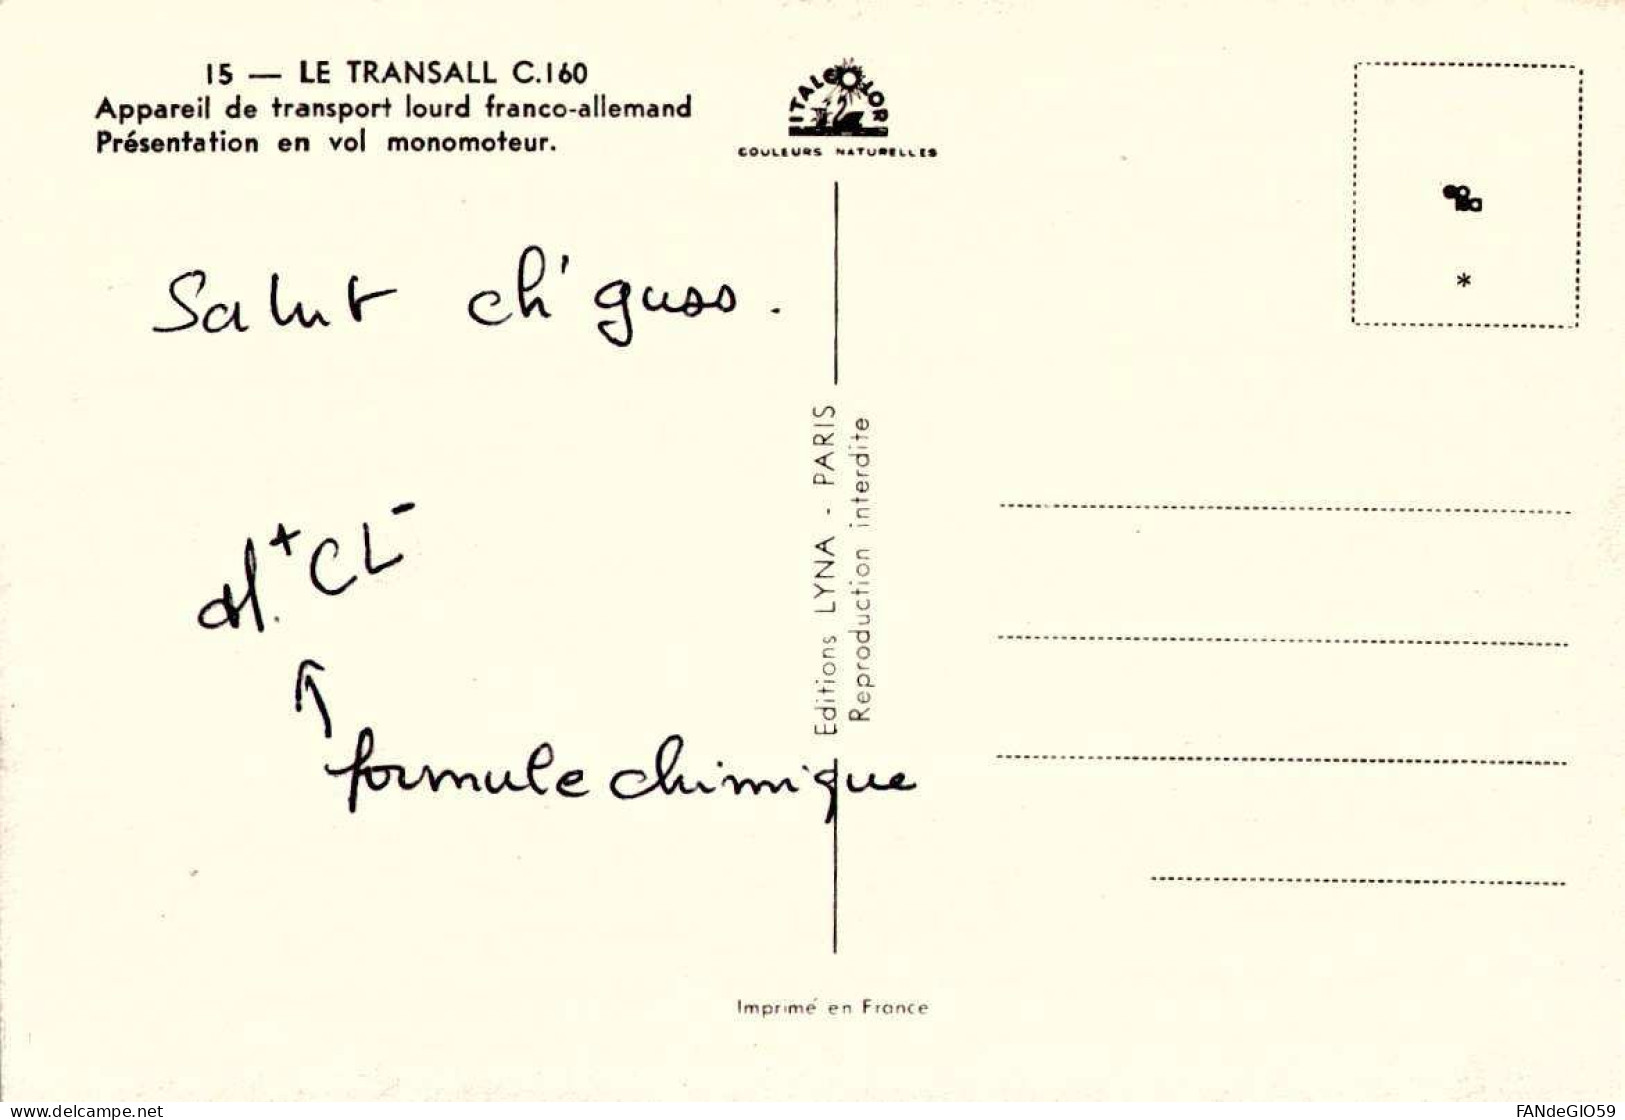 15 — LE TRANSALL C.160
Appareil de transport lourd franco-allemand
Présentation en vol monomoteur.
ITALCOLOR
COULEURS NATURELLES
*
Salut ch' guss.
H.⁺CL⁻
↑
formule chimique
Editions LYNA - PARIS
Reproduction interdite
Imprimé en France
www.delcampe.net
FANdeGIO59